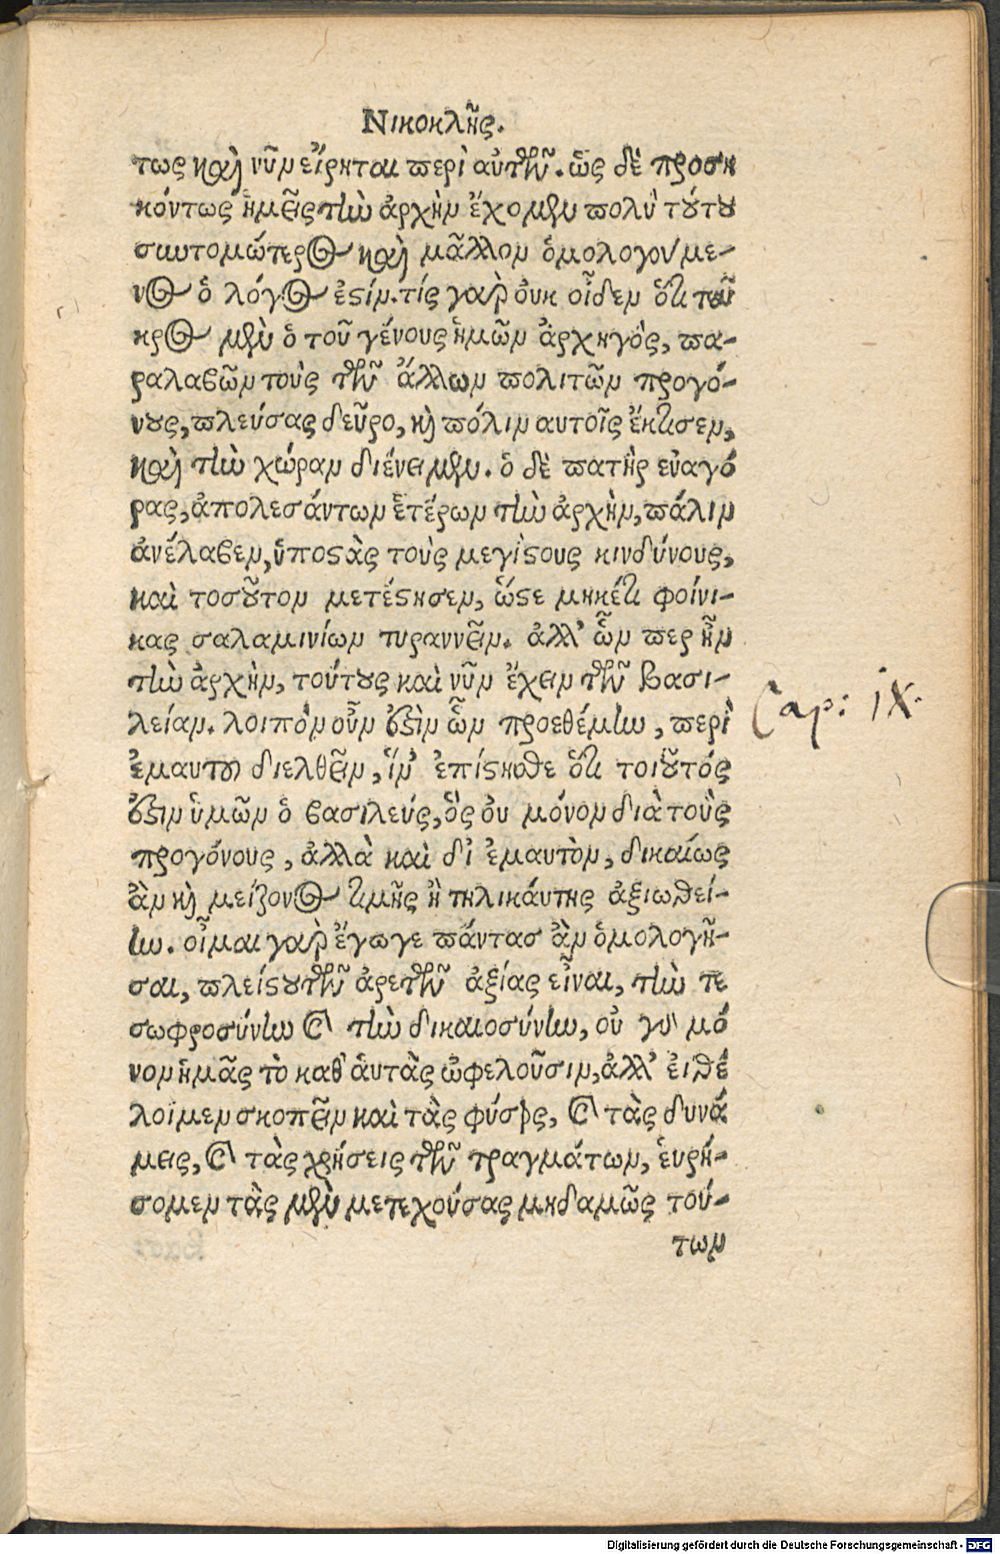 Νικοκλῆς.
τως καὶ νῦν εἴρηται περὶ αὐτῶν. ὡς δὲ προση
κόντως ἡμεῖς τὴν ἀρχὴν ἔχομεν πολὺ τούτου
σαυτομώτερος καὶ μᾶλλον ὁμολογούμε-
νος ὁ λόγος ἐστίν. τίς γὰρ οὐκ οἶδεν ὅτι τεῦ
κρος μὲν ὁ τοῦ γένους ἡμῶν ἀρχηγὸς, πα-
ραλαβὼν τοὺς τῶν ἄλλων πολιτῶν προγό-
νους, πλεύσας δεῦρο, καὶ πόλιν αυτοῖς ἔκτισεν,
καὶ τὴν χώραν διένειμεν. ὁ δὲ πατὴρ εὐαγό
ρας, ἀπολεσάντων ἑτέρων τὴν ἀρχὴν, πάλιν
ἀνέλαβεν, ὑποστὰς τοὺς μεγίστους κινδύνους,
καὶ τοσοῦτον μετέστησεν, ὥστε μηκέτι φοίνι-
κας σαλαμινίων τυραννεῖν. ἀλλ' ὧν περ ἦν
τὴν ἀρχὴν, τούτους καὶ νῦν ἔχειν τῶν βασι-
λείαν. λοιπὸν οὖν ἐστὶν ὧν προεθέμην, περὶ
ἐμαυτοῦ διελθεῖν, ἵν' ἐπίστησθε ὅτι τοιοῦτός
ἐστιν ὑμῶν ὁ βασιλεύς, ὃς οὐ μόνον διὰ τοὺς
προγόνους, ἀλλὰ καὶ δι' ἐμαυτὸν, δικαίως
ἂν καὶ μείζονος τιμῆς ἢ τηλικάυτης ἀξιωθεί-
ην. οἶμαι γὰρ ἔγωγε πάντας ἂν ὁμολογῆ-
σαι, πλείστου τῶν ἀρετῶν ἀξίας εἶναι, τὴν τε
σωφροσύνην καὶ τὴν δικαιοσύνην, οὐ γὰρ μό
νον ἡμᾶς τὸ καθ' ἁυτὰς ὠφελοῦσιν, ἀλλ' ἐι θέ
λοιμεν σκοπεῖν καὶ τὰς φύσεις, καὶ τὰς δυνά
μεις, καὶ τὰς χρήσεις τῶν πραγμάτων, ἑυρή-
σομεν τὰς μὲν μετεχούσας μηδαμῶς τού-
των
Cap: IX.
Digitalisierung gefördert durch die Deutsche Forschungsgemeinschaft - DFG